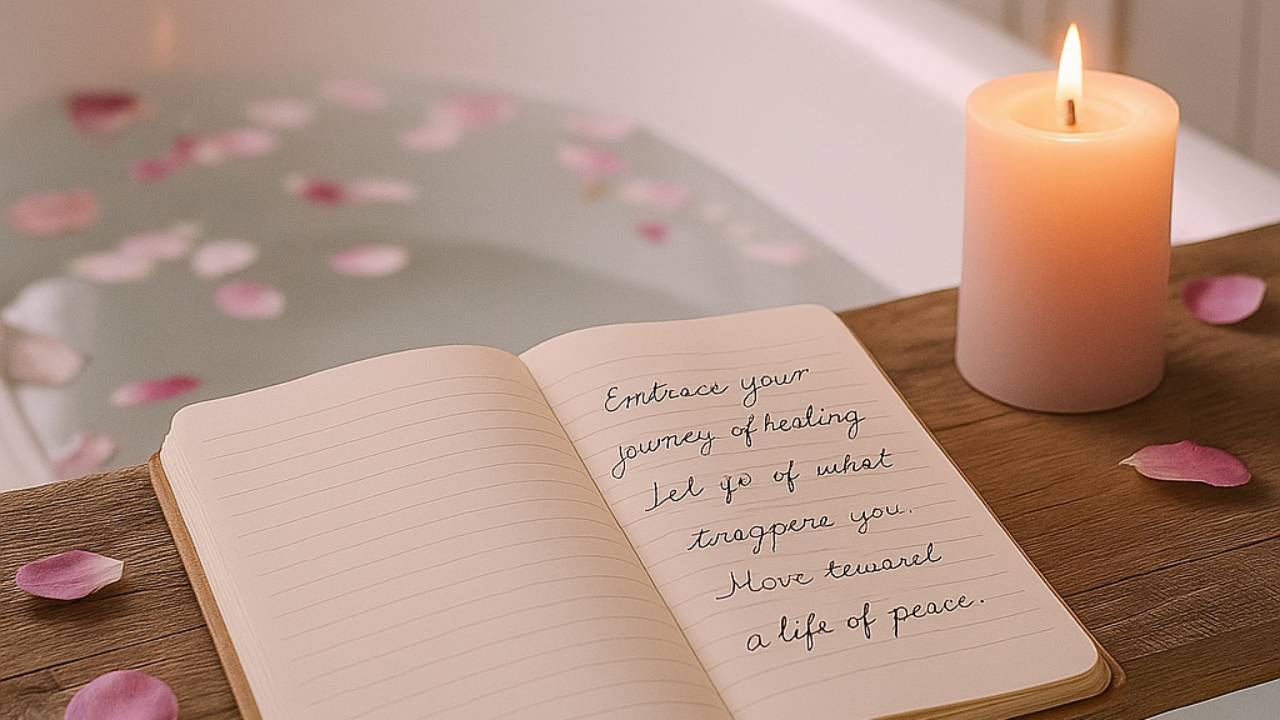 Emtrace your
journey of healing
Let go of what
tragpere you.
Move teward
a life of peace.